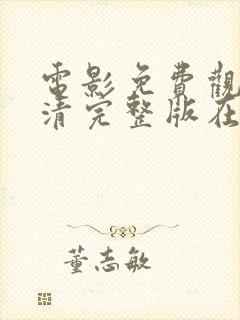 電影免費觀
清完整版在
董志敏